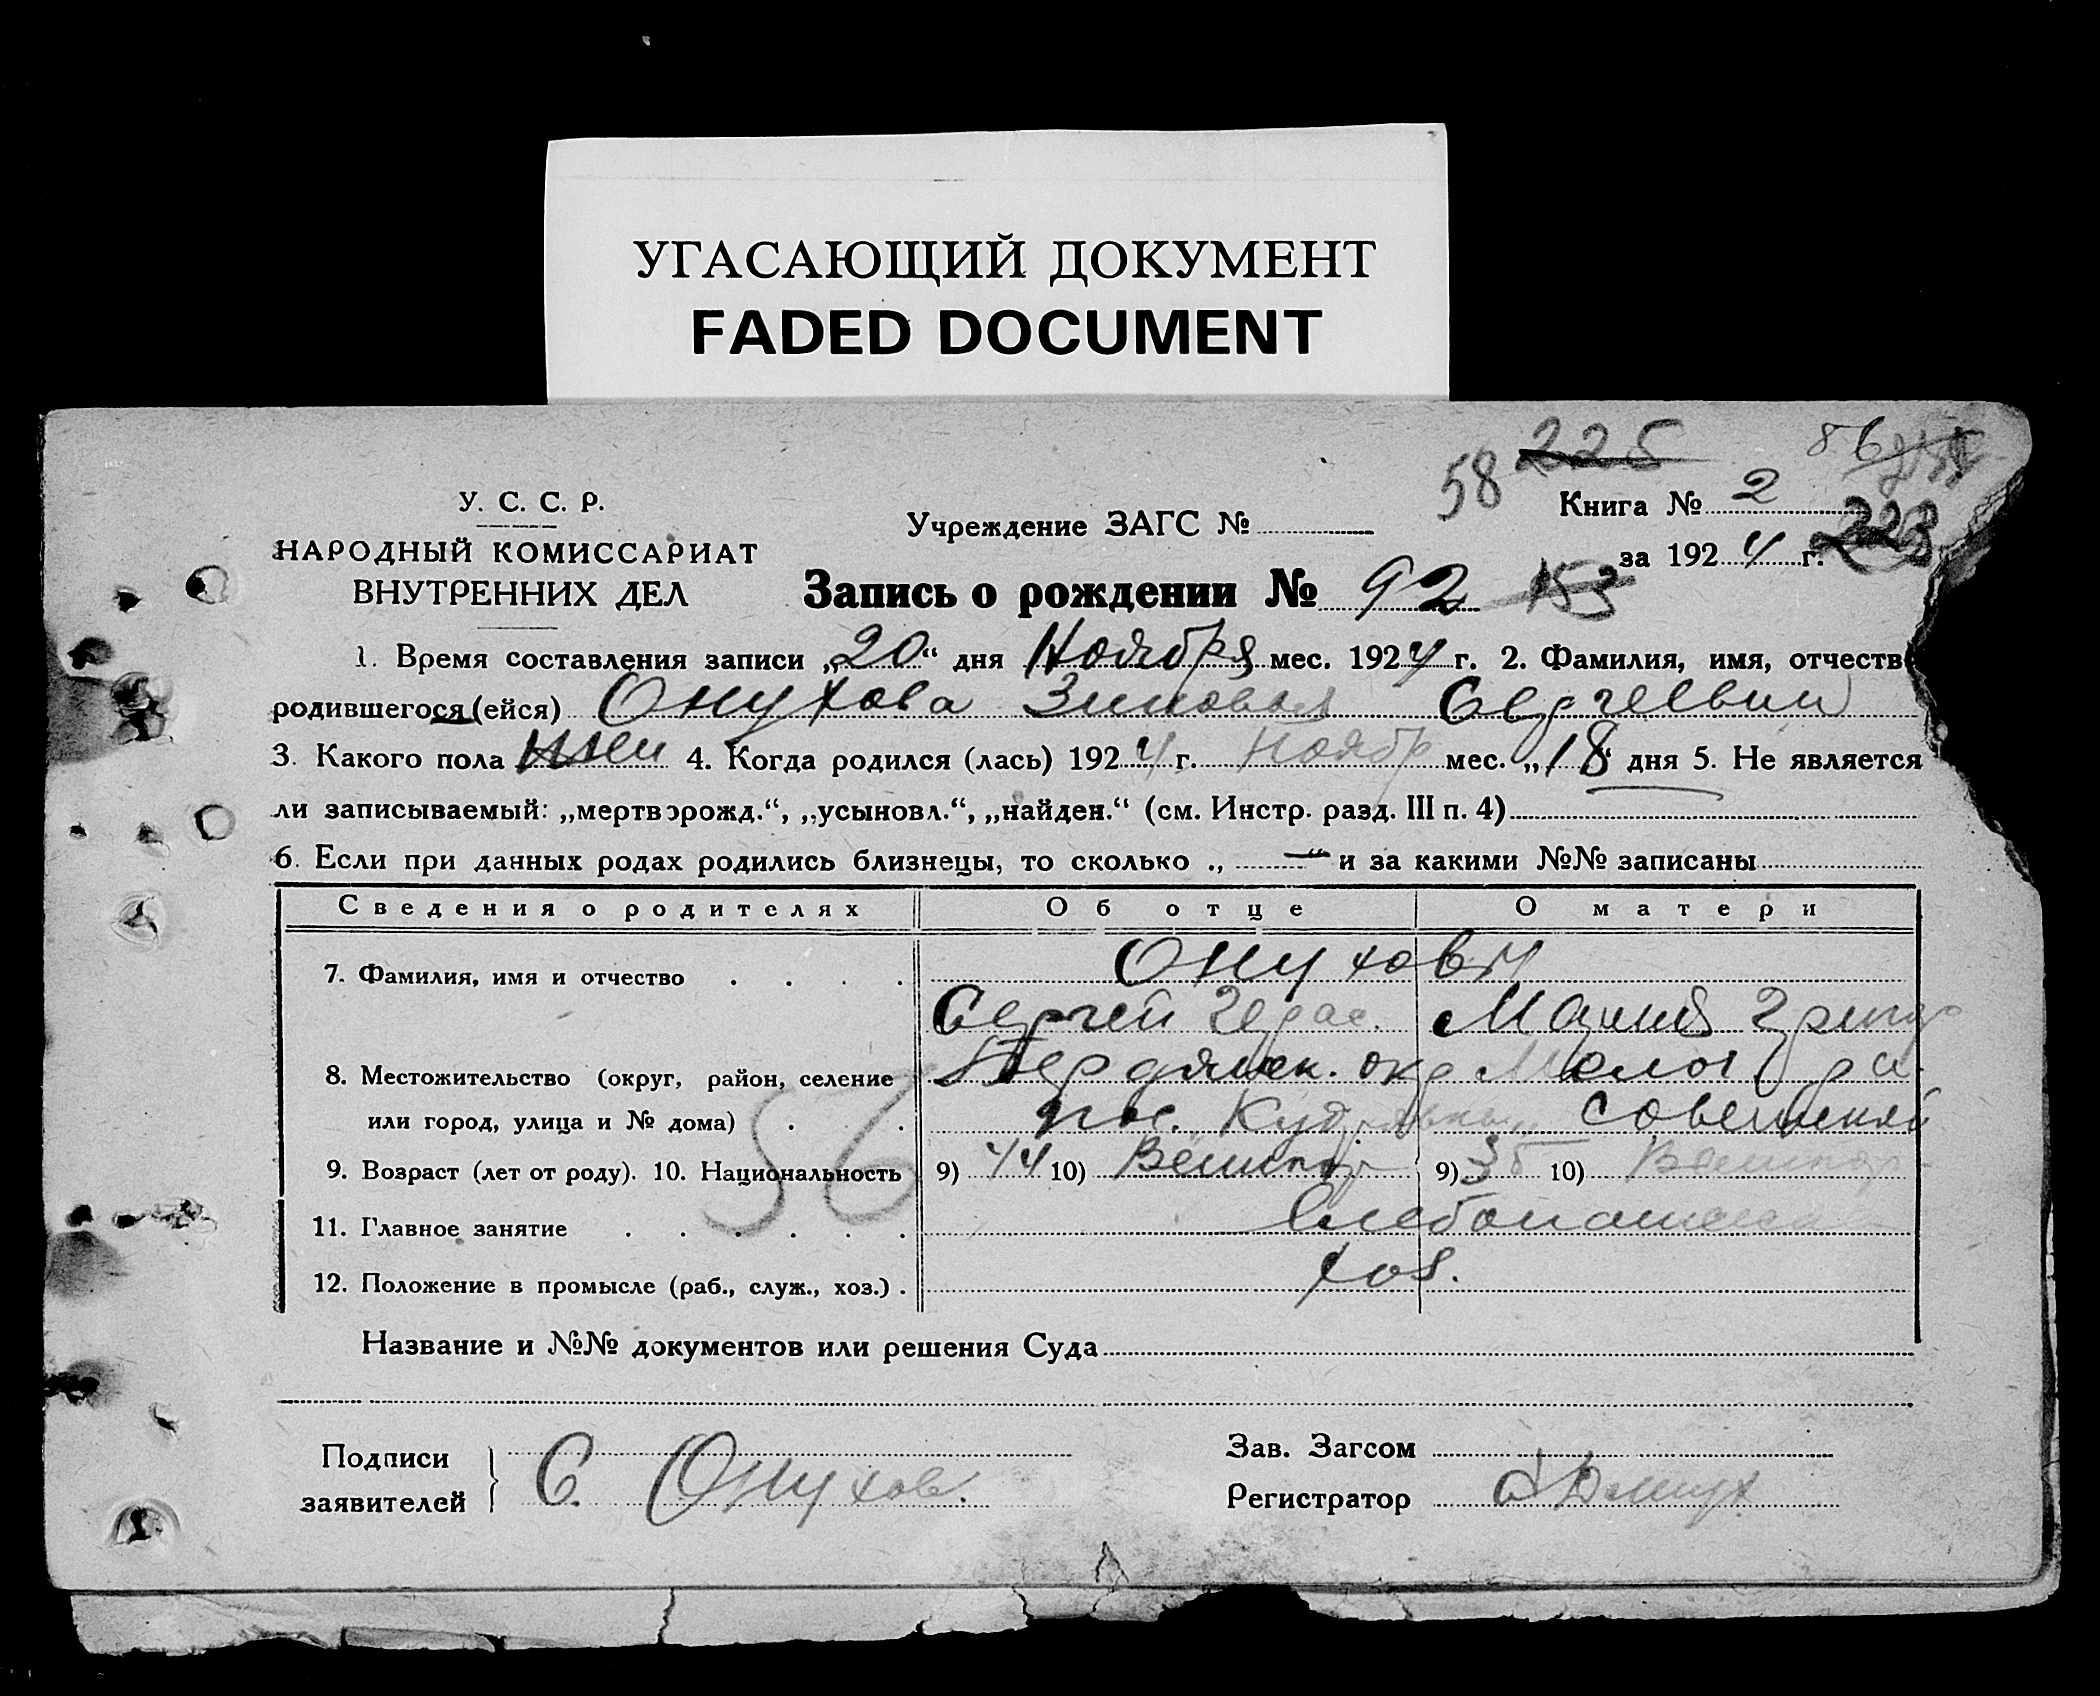 УГАСАЮЩИЙ ДОКУМЕНТ
FADED DOCUMENT
58 225 86
У. С. С. Р.
НАРОДНЫЙ КОМИССАРИАТ
ВНУТРЕННИХ ДЕЛ
Учреждение ЗАГС №
Книга № 2
за 1924 г. 223
Запись о рождении № 92 153
1. Время составления записи „20“ дня Ноября мес. 1924 г. 2. Фамилия, имя, отчеств
родившегося (ейся) Онухова Зиновья Сергеевий
3. Какого пола жен 4. Когда родился (лась) 1924 г. Ноябр мес. „18“ дня 5. Не является
ли записываемый: „мертворожд.“, „усыновл.“, „найден.“ (см. Инстр. разд. III п. 4)
6. Если при данных родах родились близнецы, то сколько „ — “ и за какими №№ записаны
Сведения о родителях Об отце О матери
7. Фамилия, имя и отчество Онуховы
Сергей Герас. Мария
8. Местожительство (округ, район, селение Бердянск. окр
или город, улица и № дома) пос.
56
9. Возраст (лет от роду). 10. Национальность 9) 44 10) 9) 35 10)
11. Главное занятие Хлебопашество
12. Положение в промысле (раб., служ., хоз.) хоз.
Название и №№ документов или решения Суда
Подписи
заявителей } С. Онухов.
Зав. Загсом
Регистратор